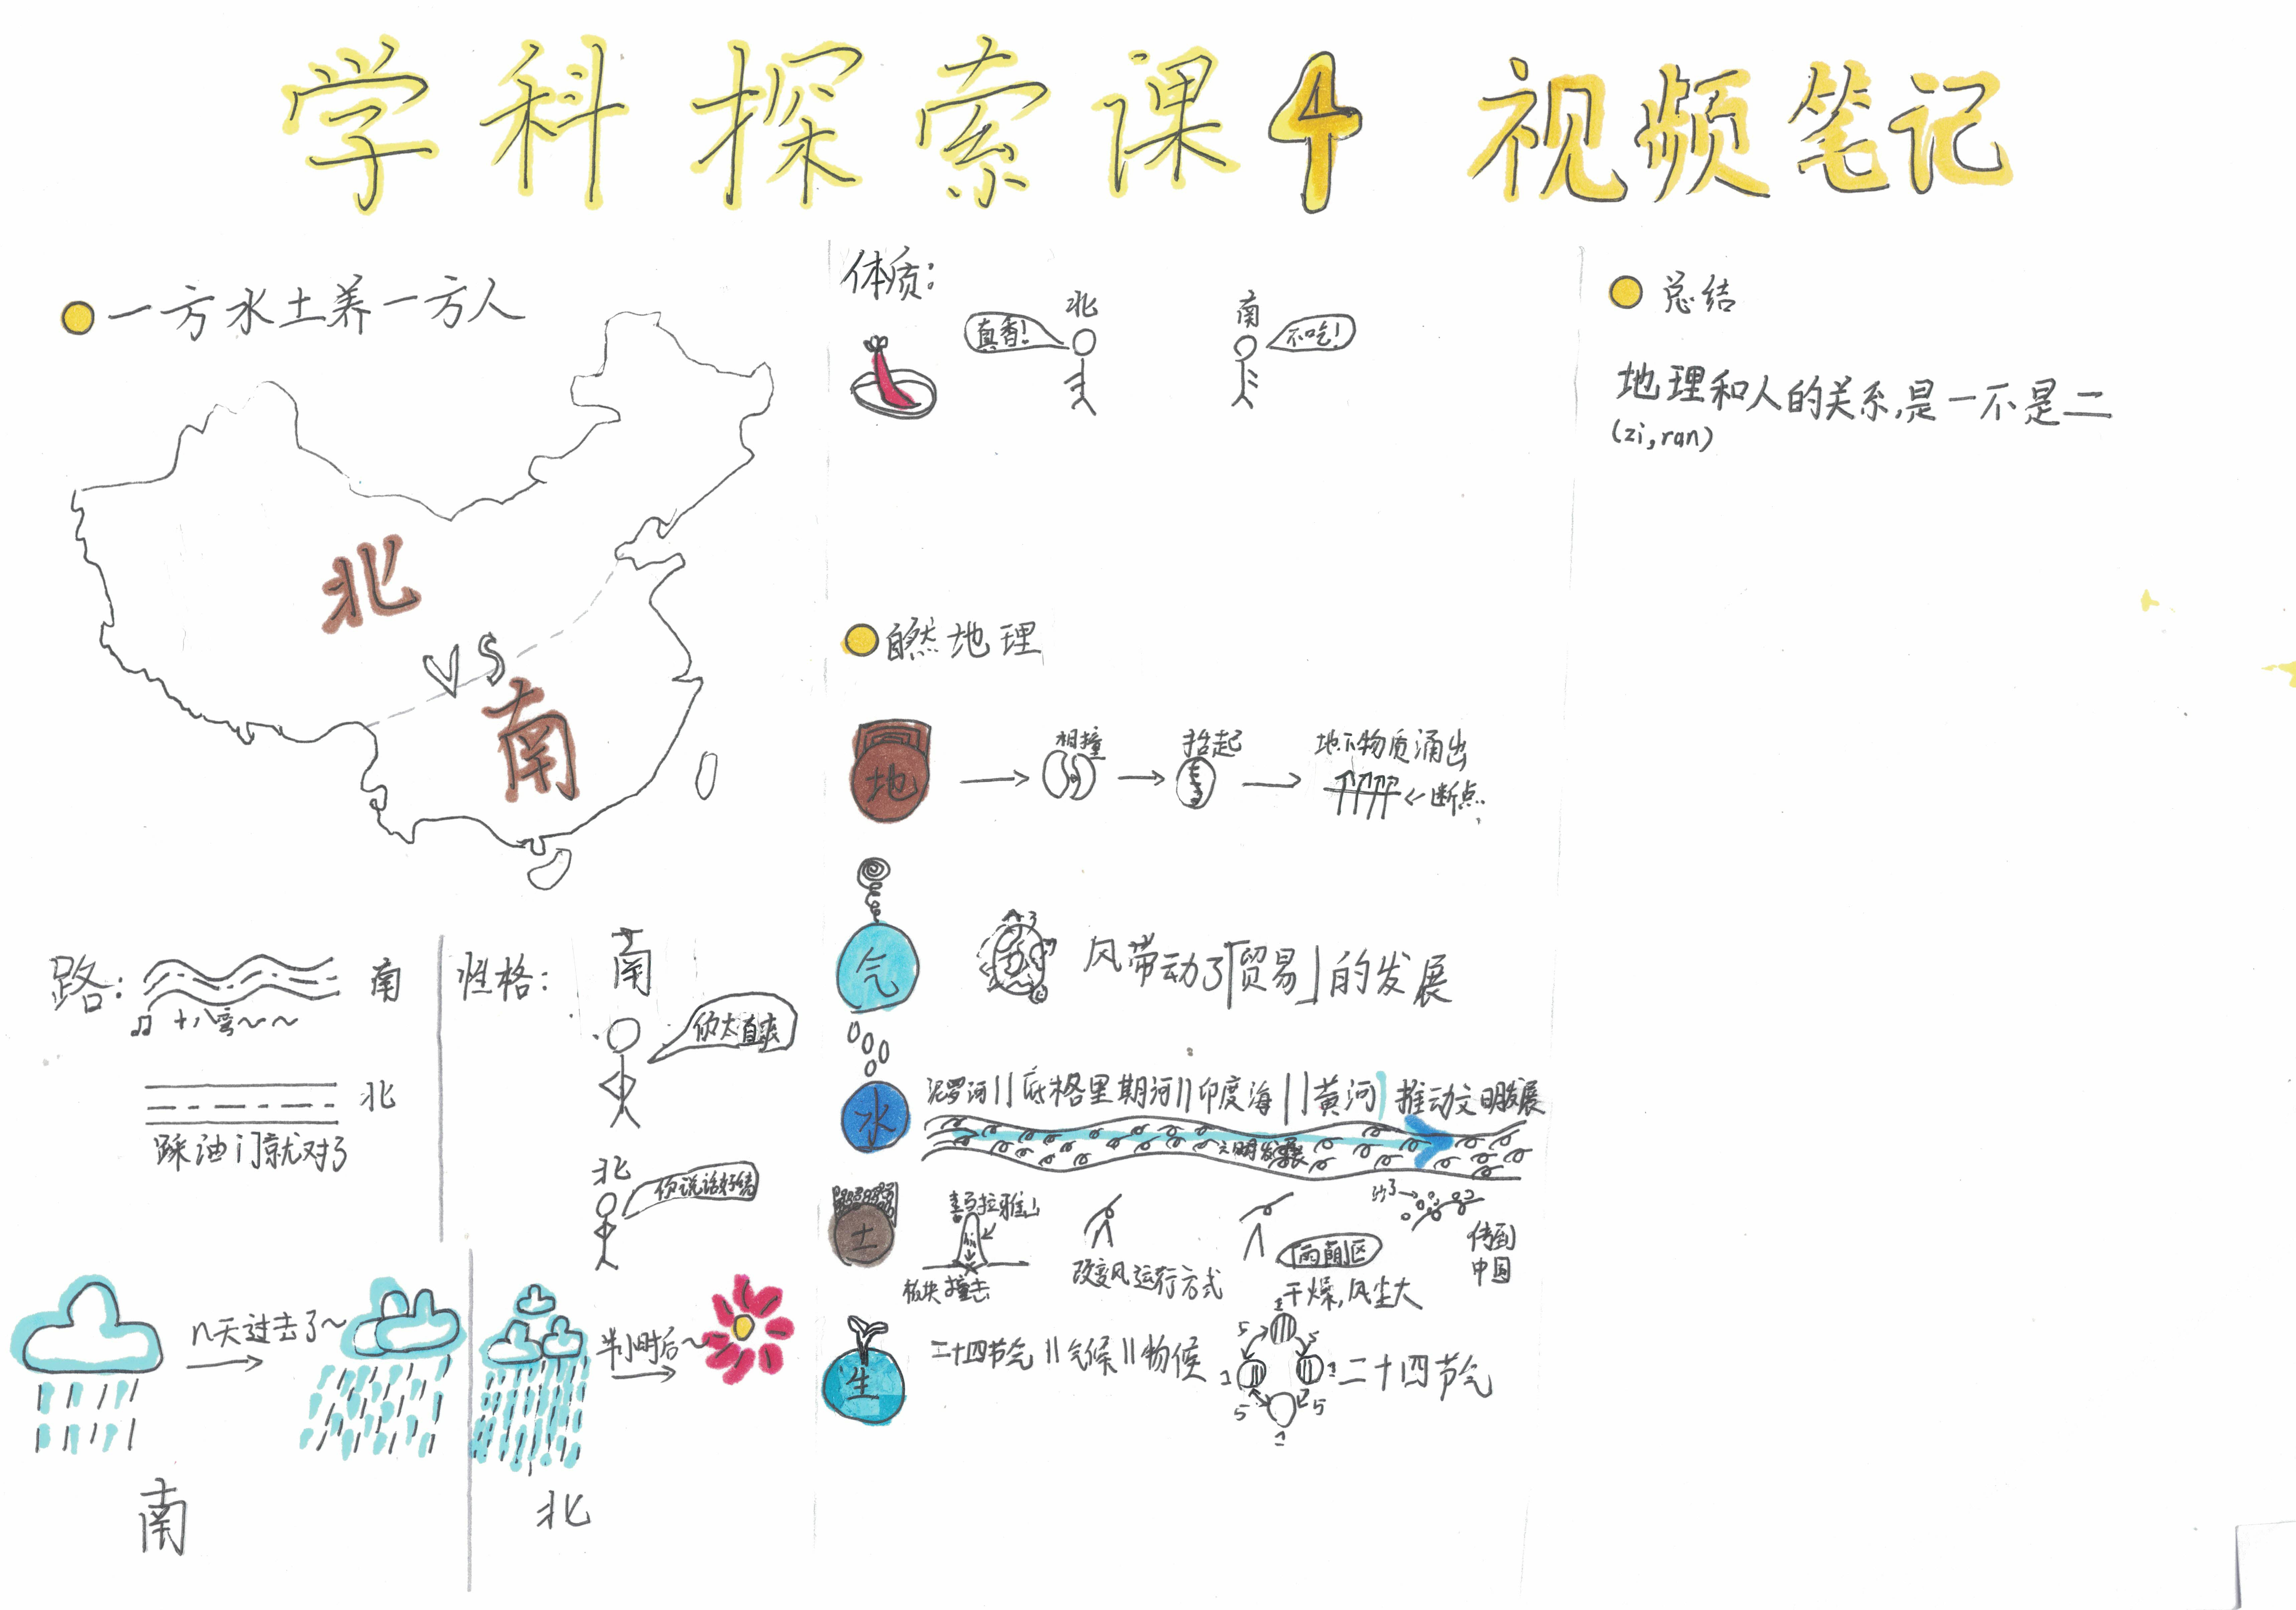 学科探索课4 视频笔记
一方水土养一方人
北
VS
南
路:
南
十八弯~~
北
踩油门就对了
性格:
南
你太直爽
北
你说话好绕
n天过去了~
南
半小时后~
北
体质:
北
真香!
南
不吃!
自然地理
地
相撞
抬起
地下物质涌出
←断点
气
风带动了「贸易」的发展
水
泥罗河||底格里期河||印度海||黄河 推动文明发展
文明发展
土
喜马拉雅山
板块撞击
改变风运行方式
雨荫区
干燥,风尘大
传到
中国
生
二十四节气||气候||物候
1
5
5
1
1
5
5
1
二十四节气
总结
地理和人的关系,是一不是二
(zi,ran)